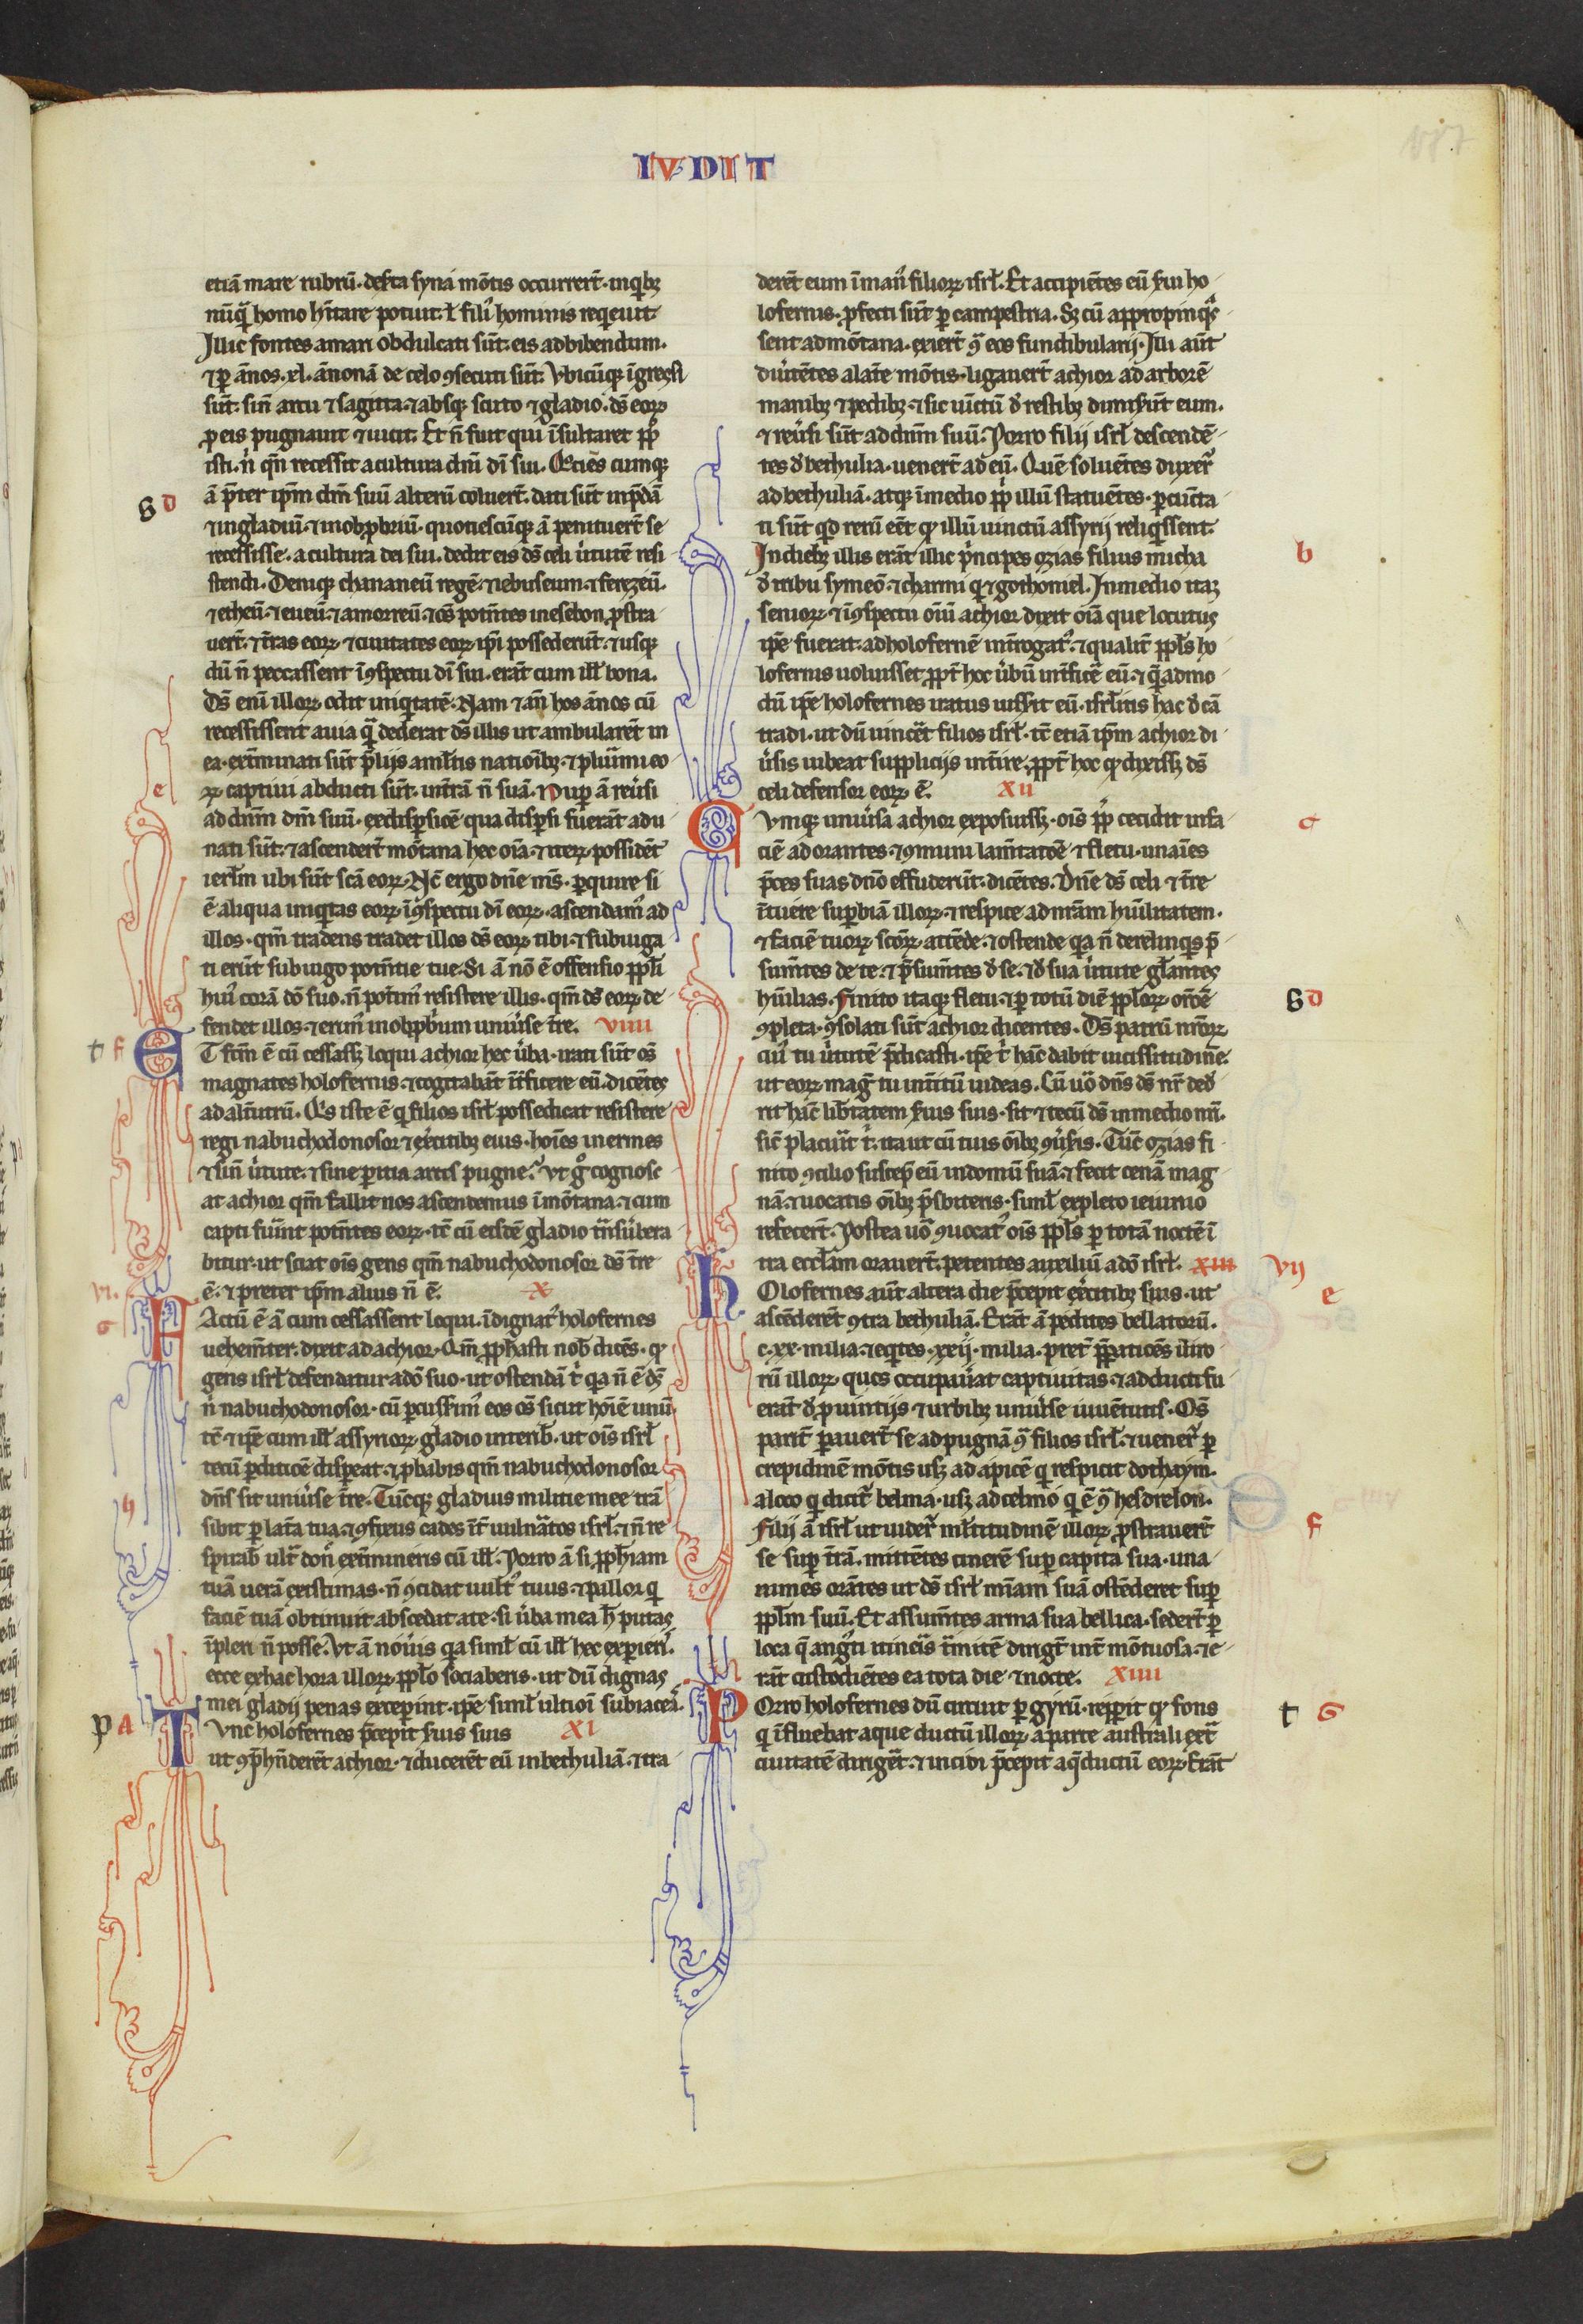 IVDIT
etiā mare rubrū. desta syna mōtis occurrert̄. in qͥbꝫ
nūqͣ homo hītare potuit. ł filiꝰ hominis req̄euit.
Illic fontes amari obdulcati sūt. eis ad bibendum.
⁊ ꝑ ānos. xl. ānonā de celo ꝯsecuti sūt. Vbicūqꝫ īgressi
sūt. sin̄ arcu ⁊ sagitta. ⁊ absqꝫ scuto ⁊ gladio. ds̄ eoꝝ
ꝓ eis pugnauit ⁊ uicit. Et n̄ fuit qui īsultaret pplō
isti. nͥ qn̄ recessit a cultura dn̄i dī sui. Qͦciēs cumqꝫ
ā p̄ter ip̄m dm̄ suū alterū coluert̄. dati sūt in p̄dā
⁊ in gladiū. ⁊ in obꝓbriū. quotiescūqꝫ ā penituert̄ se
recessisse. a cultura dei sui. dedit eis ds̄ celi ỻtutē resi
stendi. Deniqꝫ chananeū regē. ⁊ iebuseum. ⁊ ferezeū.
⁊ etheū. ⁊ eueū. ⁊ amorreū. ⁊ oēs potn̄tes in esebon ꝓstra
uert̄. ⁊ tr̄as eoꝝ ⁊ ciuitates eoꝝ ip̄i possederūt. ⁊ usqꝫ
dū n̄ peccassent ī ꝯspectu dī sui. erāt cum ill̄ bona.
Ds̄ enī illoꝝ odit iniqͥtatē. Nam ⁊ an̄ hos ānos cū
recessissent a uia qͣ dederat ds̄ illis ut ambularēt in
ea. exͭminati sūt p̄lijs a ml̄tis natiōibꝫ. ⁊ plurimi eo
ꝝ captiui abducti sūt. in tr̄ā n̄ suā. Nuꝑ ā reūsi
ad dn̄m dm̄ suū. ex disꝑsiōe qua disꝑsi fuerāt adu
nati sūt. ⁊ ascendert̄ mōtana hec oīa. ⁊ iteꝝ possidēt
ierlm̄ ubi sūt scā eoꝝ. Nc̄ ergo dn̄e m̄s. ꝑquire si
ē aliqua iniqͥtas eoꝝ. ī ꝯspectu dī eoꝝ. ascendamꝰ ad
illos. qm̄ tradens tradet illos ds̄ eoꝝ tibi. ⁊ subiuga
ti erūt sub iugo potn̄tie tue. Si ā nō ē offensio ppl̄i
huiꝰ corā dō suo. n̄ potimꝰ resistere illis. qm̄ ds̄ eoꝝ de
fendet illos. ⁊ erimꝰ in obꝓbrium uniūse tr̄e. VIIII
ET fcm̄ ē cū cessassꝫ loqui achior hec ūba. irati sūt oēs
magnates holofernis. ⁊ cogitabāt īt̄ficere eū. dicētes
ad alūtrū. Qͥs iste ē qͥ filios isrl̄ posse dicat resistere
regi nabuchodonosor ⁊ exͨitibꝫ eius. hoīes inermes
⁊ sin̄ ūtute. ⁊ sine ꝑitia artis pugne. Vt gͦ cognosc
at achior qm̄ fallit nos ascendemus ī mōtana. ⁊ cum
capti fuūnt potn̄tes eoꝝ. tc̄ cū eisdē gladio tn̄sūbera
bitur. ut sciat oīs gens qm̄ nabuchodonosor ds̄ tr̄e
ē. ⁊ preter ip̄m alius n̄ ē. X
Factū ē ā cum cessassent loqui. īdignatꝰ holofernes
uehemn̄ter. dixit ad achior. Qm̄ ꝓphasti nob̄ dicēs. qͥ
gens isrl̄ defendatur a dō suo. ut ostendā tͥ qͣ n̄ ē ds̄
nͥ nabuchodonosor. cū ꝑcussimꝰ eos oēs sicut hoīē unū
tc̄ ⁊ ip̄e cum ill̄ assyrioꝝ gladio interib̄. ut oīs isrl̄
tecū ꝑditiōe dispeat. ⁊ ꝓbabis qm̄ nabuchodonosor
dn̄s sit uniūse tr̄e. Tūcqꝫ gladius militie mee trā
sibit ꝑ lat̄a tua. ⁊ ꝯfixus cades īt̄ uulnātos isrl̄. ⁊ n̄ re
spirab̄ ultͣ donͨ extͭmineris cū ill̄. Porro ā si ꝓphīam
tuā uerā existimas. n̄ ꝯcidat uultꝰ tuus. ⁊ pallor qͥ
faciē tuā obtinuit abscedat a te. si ūba mea h̄ putas
īpleri n̄ posse. Vt ā noūis qͣ siml̄ cū ill̄ hec experieris.
ecce ex hac hora illoꝝ pplō sociaberis. ut dū dignas
mei gladij penas exceꝑint. ip̄e siml̄ ultioī subiaceas.
TVnc holofernes p̄cepit ẜuis suis XI
ut ꝯp̄hn̄derēt achior. ⁊ ducerēt eū in bethuliā. ⁊ tra
derēt eum ī manꝰ filioꝝ isrl̄. Et accipiētes eū ẜui ho
lofernis. ꝓfecti sūt ꝑ campestria. Sꝫ cū appropinqͣs
sent ad mōtana. exiert̄ ꝯͣ eos fundibularij. Illi aūt
diūtētes a latē mōtis. ligauert̄ achior ad arborē
manibꝫ ⁊ pedibꝫ. ⁊ sic uīctū d̄ restibꝫ dimiserūt eum.
⁊ reūsi sūt ad dn̄m suū. Porro filij isrl̄ descendē
tes d̄ bethulia. uenert̄ ad eū. Quē soluētes duxerͭ
ad bethuliā. atqꝫ ī medio pplī illū statuētes. ꝑcūcta
ti sūt qͥd rerū eēt qͥ illū uinctū assyrij reliqͥssent.
In diebꝫ illis erāt illic pͥncipes ozias filius micha
d̄ tribu symeō. ⁊ charmi qͥ ⁊ gothoniel. In medio itaqꝫ
senioꝝ. ⁊ ī ꝯspectu oīū achior dixit oīa que locutus
ip̄e fuerat. ad holofernē int̄rogatꝰ. ⁊ qualit̄ ppl̄s ho
lofernis uoluisset ꝓpt̄ hoc ūbū int̄ficē eū. ⁊ qͣ admo
dū ip̄e holofernes iratus iussit eū. isrl̄itis hac d̄ cā
tradi. ut dū uincēt filios isrl̄. tc̄ etiā ip̄m achior di
ūsis iubeat supplicijs int̄ire. ꝓpt̄ hoc qͥ dixissꝫ ds̄
celi defensor eoꝝ ē. XII
CVmqꝫ uniūsa achior exposuissꝫ. oīs pplś cecidit in fa
ciē adorantes. ⁊ ꝯmuni lam̄tatōe ⁊ fletu. unaīes
p̄ces suas dn̄o effuderūt. dicētes. Dn̄e ds̄ celi ⁊ tr̄e
ītuere suꝑbiā illoꝝ. ⁊ respice ad nr̄am hūilitatem.
⁊ faciē tuoꝝ scōꝝ. attēde. ⁊ ostende qͣ n̄ derelinqͥs p̄
sum̄tes de te. ⁊ p̄sum̄tes d̄ se. ⁊ d̄ sua ūtute gl̄antes
hūilias. Finito itaqꝫ fletu. ⁊ ꝑ totū diē pploꝝ orōē
ꝯpleta. ꝯsolati sūt achior dicentes. Ds̄ patrū nr̄oꝝ
cuiꝰ tu ūtutē p̄dicasti. ip̄e tͥ hāc dabit uicissitudin̄e.
ut eoꝝ magͥ tu int̄itū uideas. Cū uō dn̄s ds̄ nr̄ ded̄
rit hāc lib̄tatem ẜuis suis. sit ⁊ tecū ds̄ in medio nr̄i.
sic̄ placuīt tͥ. ita ut cū tuis oībꝫ ꝯūseris. Tūc ozias fi
nito ꝯcilio suscep̄ eū in domū suā. ⁊ fecit cenā mag
nā. ⁊ uocatis oībꝫ p̄sbiteris. siml̄ expleto ieiunio
refecert̄. Postea uō ꝯuocatꝰ oīs ppl̄s ꝑ totā noctē ī
tra eccl̄am orauert̄. petentes auxiliū a dō isrl̄. XIII
hOlofernes aūt altera die p̄cepit exͨitibꝫ suis. ut
ascēderēt ꝯtra bethuliā. Erāt ā pedites bellatorū.
c.xx. milia. ⁊ eqͥtes. xxij. milia. pret̄ p̄paratiōēs uiro
rū illoꝝ. quos occupauāt captiuitas. ⁊ adducti fu
erāt d̄ ꝓuintijs ⁊ urbibꝫ uniūse iuuētutis. Oēs
parit̄ ꝑauert̄ se ad pugnā ꝯͣ filios isrl̄. ⁊ uenerͭ ꝑ
crepidinē mōtis usqꝫ ad apicē qͥ respicit dothaym.
a loco qͥ dicit̄ belma. usqꝫ ad celmō qͥ ē ꝯͣ hesdrelon.
Filij ā isrl̄ ut uiderͭ ml̄titudinē illoꝝ. ꝓstrauert̄
se suꝑ tr̄ā. mittētes cinerē suꝑ capita sua. una
nimes orātes ut ds̄ isrl̄ mīam suā ostēderet suꝑ
ppl̄m suū. Et assum̄tes arma sua bellica. sedert̄ ꝑ
loca q̄ angͥti itineris tͣmitē dirigt̄ int̄ mōtuosa. ⁊ e
rāt custodiētes ea tota die ⁊ nocte. XIIII
POrro holofernes dū circuit ꝑ gyrū. repperit qͥ fons
qͥ īfluebat aque ductū illoꝝ. a parte australi extͣ
ciuitatē dirigēt. ⁊ incidi p̄cepit aq̄ductū eoꝝ. Erāt